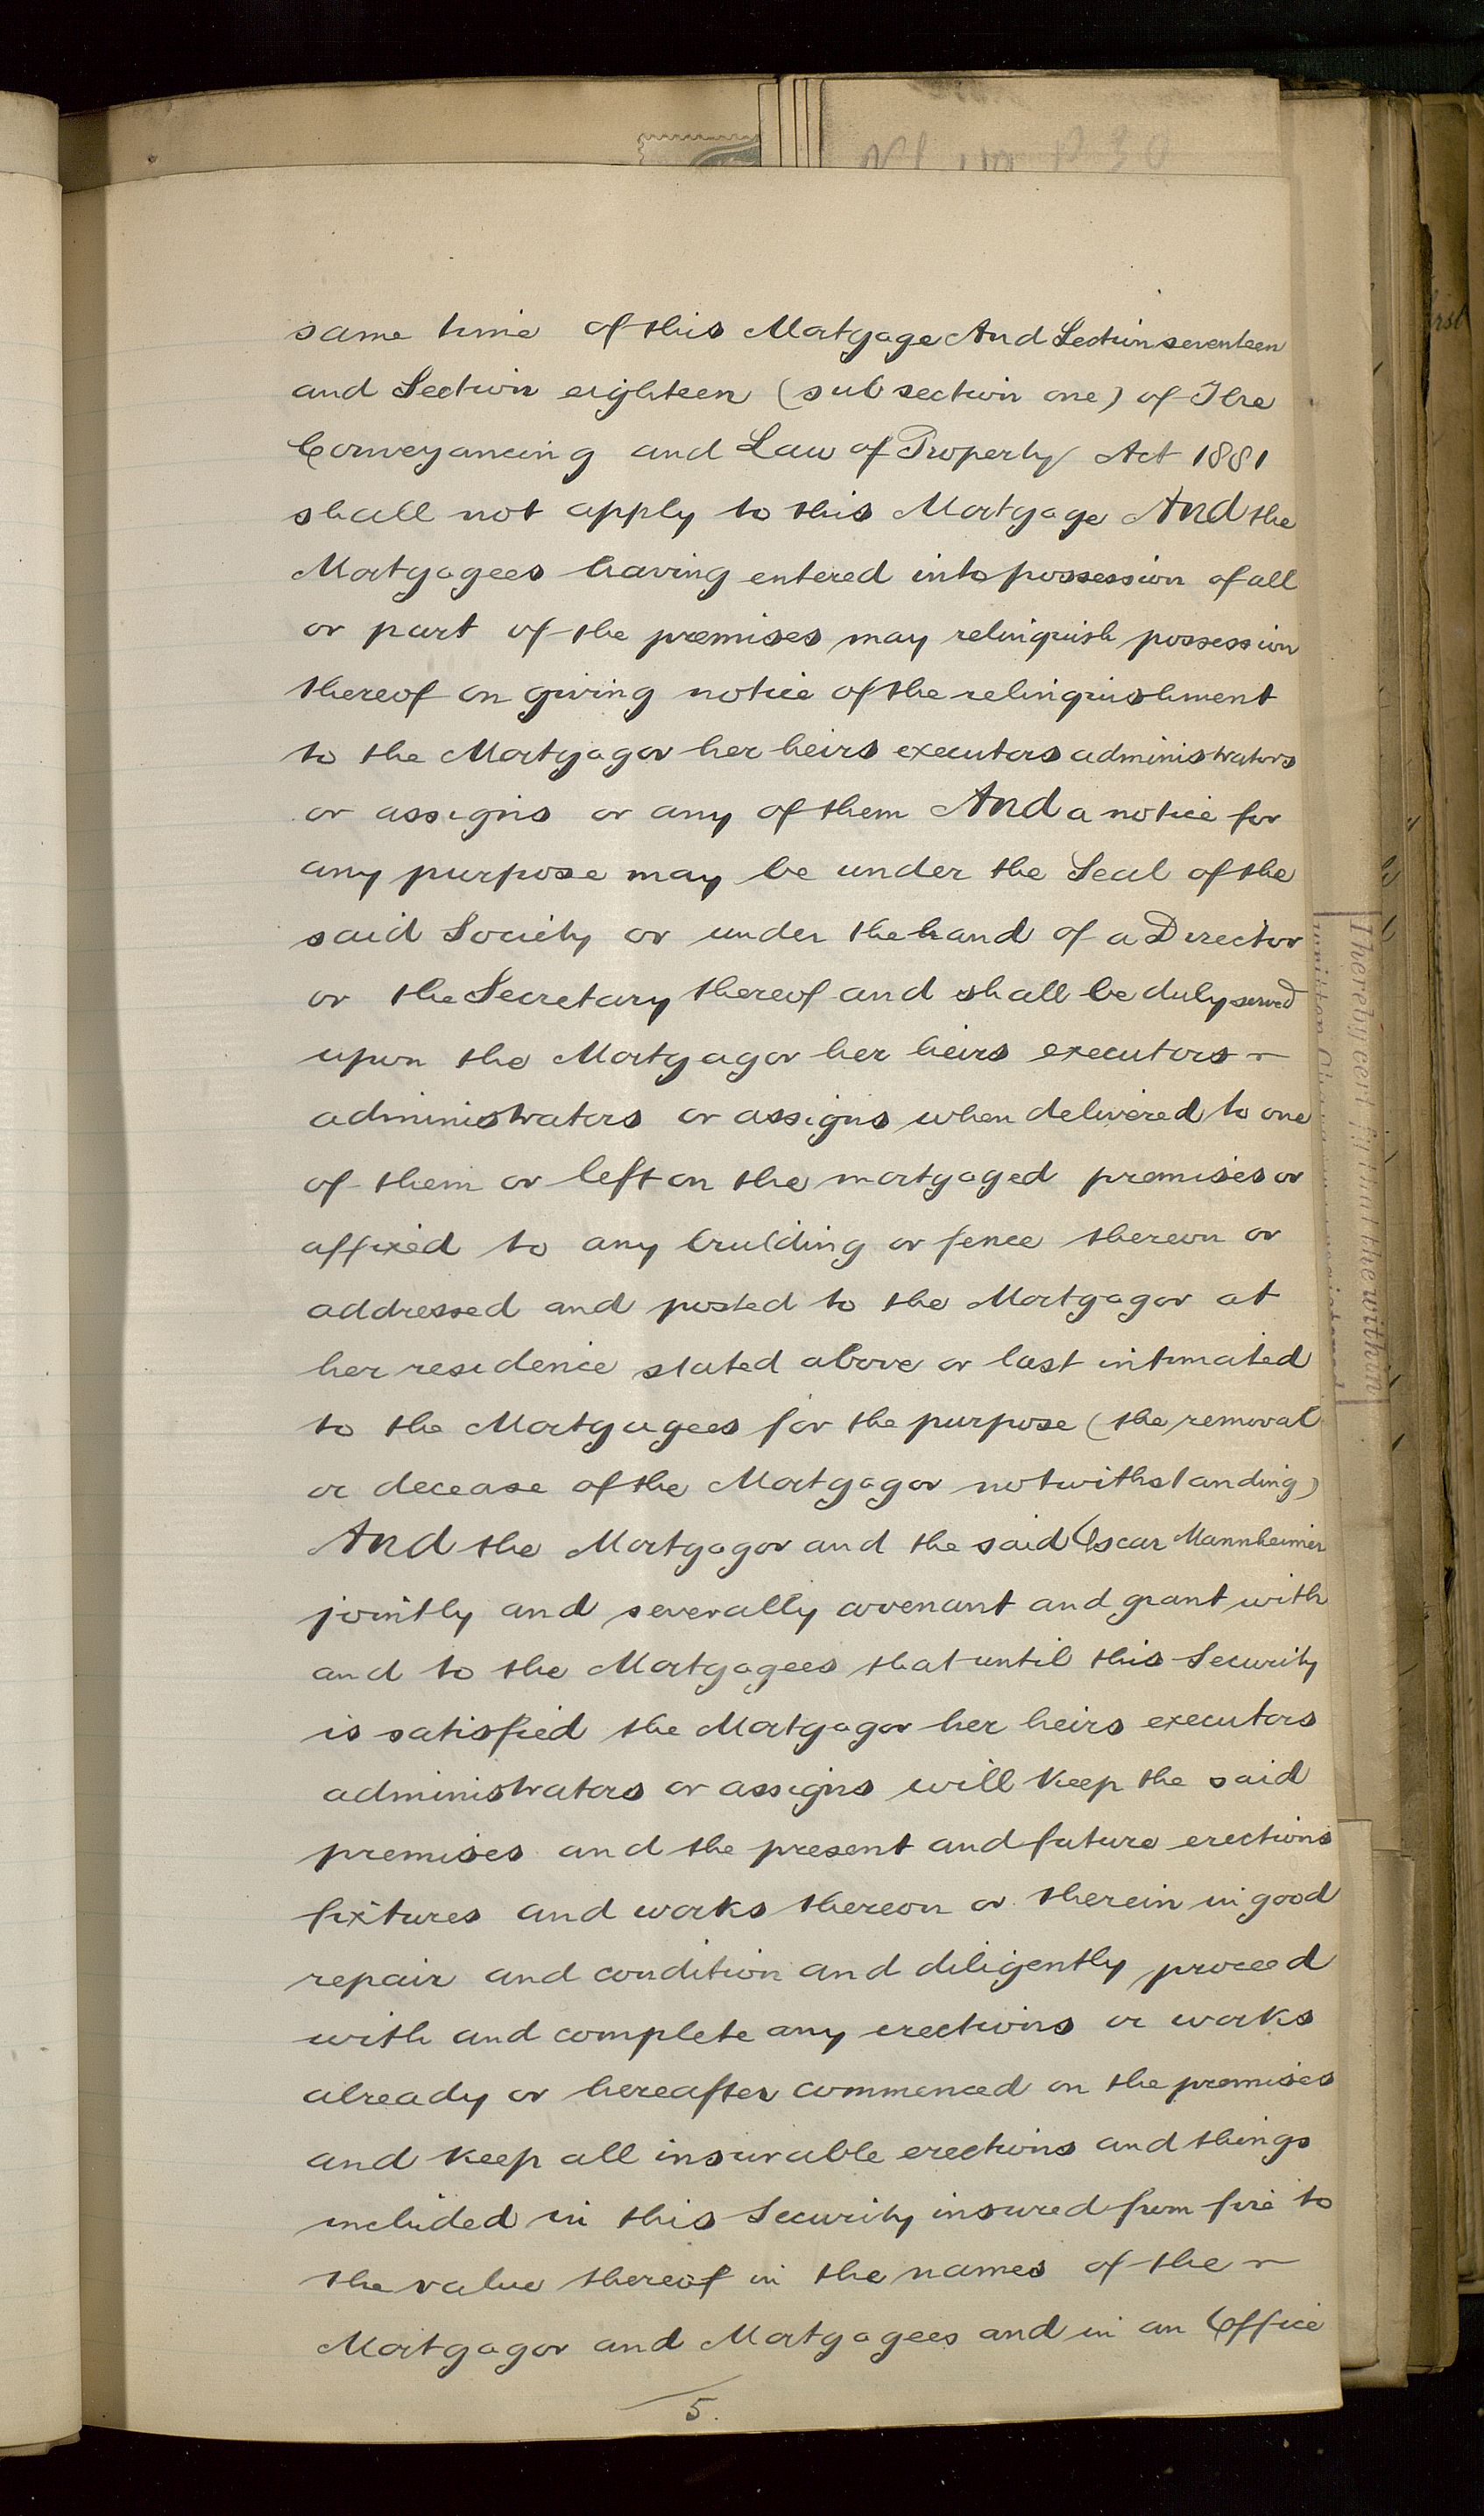 same time of this Mortgage And Section seventeen
and Section eighteen (sub section one) of The
Conveyancing and Law of Property Act 1881
shall not apply to this Mortgage And the
Mortgagees having entered into possession of all
or part of the premises may relinquish possession
thereof on giving notice of the relinquishment
to the Mortgagor her heirs executors administrators
or assigns or any of them And a notice for
any purpose may be under the Seal of the
said Society or under the hand of a Director
or the Secretary thereof and shall be duly served
upon the Mortgagor her heirs executors
administrators or assigns when delivered to one
of them or left on the mortgaged premises or
affixed to any building or fence thereon or
addressed and posted to the Mortgagor at
her residence stated above or last intimated
to the Mortgagees for the purpose (the removal
or decease of the Mortgagor notwithstanding)
And the Mortgagor and the said Oscar Mannheimer
jointly and severally covenant and grant with
and to the Mortgagees that until this Security
is satisfied the Mortgagor her heirs executors
administrators or assigns will keep the said
premises and the present and future erections
fixtures and works thereon or therein in good
repair and condition and diligently proceed
with and complete any erections or works
already or hereafter commenced on the premises
and keep all insurable erections and things
included in this Security insured from fire to
the value thereof in the names of the
Mortgagor and Mortgagees and in an Office
5.
I hereby certify that the within